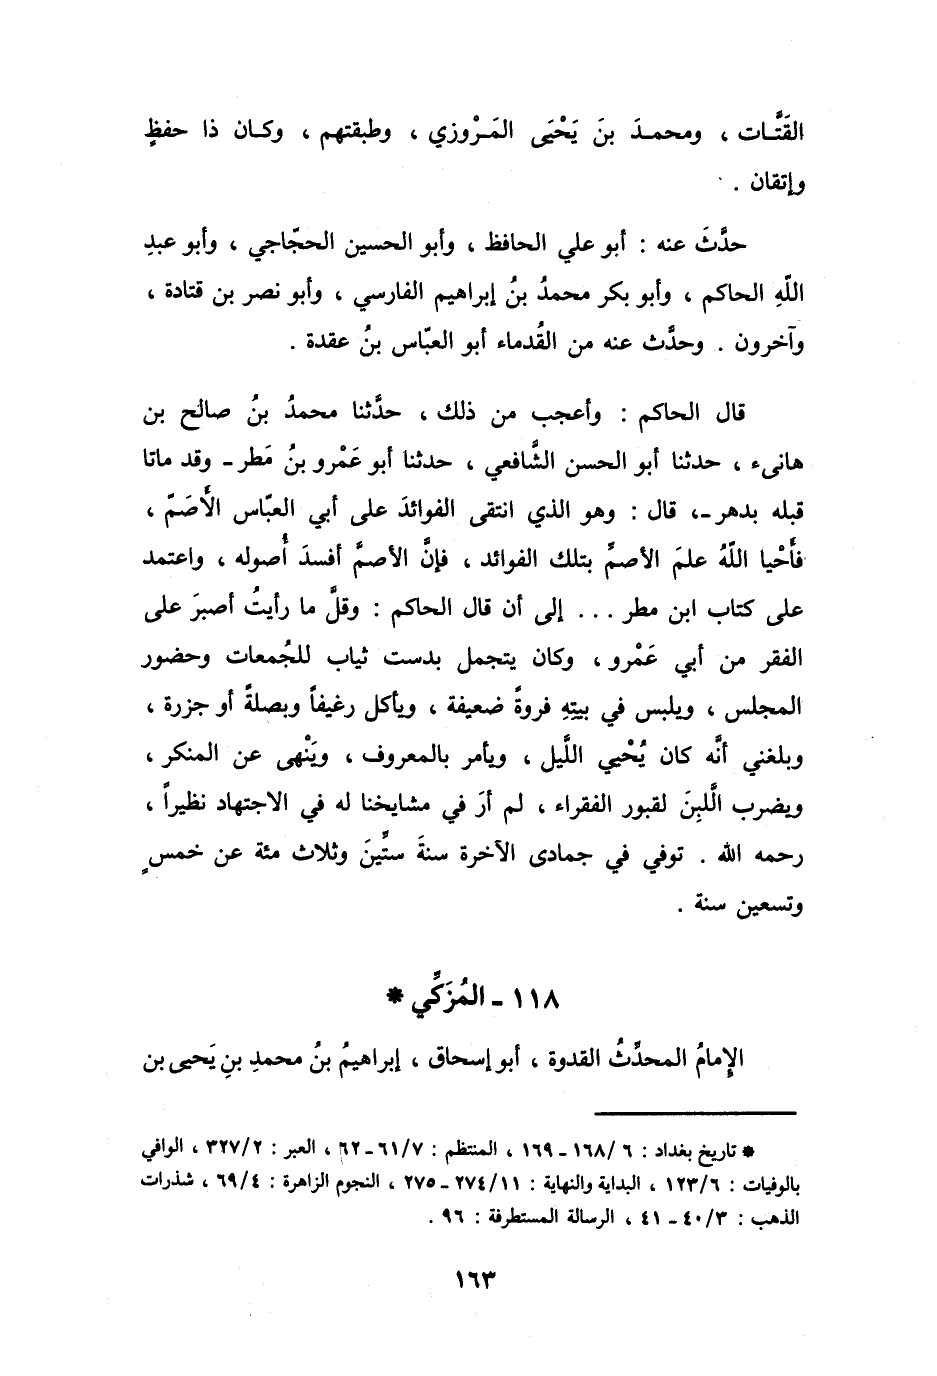 القَتَّـات ، ومحمـدَ بنَ يَحْيَى المَـرْوزي ، وطبقتهم ، وكـان ذا حفظٍ
وإتقان .
حدَّثَ عنه : أبو علي الحافظ ، وأبو الحسين الحجّاجي ، وأبو عبدِ
اللّهِ الحاكم ، وأبو بكر محمدُ بنُ إبراهيم الفارسي ، وأبو نصر بن قتادة ،
وآخرون . وحدَّث عنه من القُدماء أبو العبّاس بنُ عقدة .
قال الحاكم : وأعجب من ذلك ، حدَّثنا محمدُ بنُ صالح بن
هانىء ، حدثنا أبو الحسن الشَّافعي ، حدثنا أبو عَمْرو بنُ مَطر ـ وقد ماتا
قبله بدهر ـ، قال : وهو الذي انتقى الفوائدَ على أبي العبّاس الأَصَمّ ،
فأَحْيا اللّهُ علمَ الأصمِّ بتلك الفوائد ، فإنَّ الأصمَّ أفسدَ أُصوله ، واعتمد
على كتاب ابن مطر ... إلى أن قال الحاكم : وقلَّ ما رأيتُ أصبرَ على
الفقر من أبي عَمْرو ، وكان يتجمل بدست ثياب للجُمعات وحضور
المجلس ، ويلبس في بيتِهِ فروةً ضعيفة ، ويأكل رغيفاً وبصلةً أو جزرة ،
وبلغني أنَّه كان يُحْيي اللَّيل ، ويأمر بالمعروف ، ويَنْهى عن المنكر ،
ويضرب الَّلبِنَ لقبور الفقراء ، لم أرَ في مشايخنا له في الاجتهاد نظيراً ،
رحمه الله . توفي في جمادى الآخرة سنةَ ستِّينَ وثلاث مئة عن خمسٍ
وتسعين سنة .
١١٨ ـ المُزَكِّي *
الإِمامُ المحدِّثُ القدوة ، أبو إسحاق ، إبراهيمُ بنُ محمدِ بنِ يَحيى بن
* تاريخ بغداد : ٦ /١٦٨ ـ ١٦٩ ، المنتظم : ٧/٦١ ـ ٦٢ ، العبر : ٢/٣٢٧ ، الوافي
بالوفيات : ٦/١٢٣ ، البداية والنهاية : ١١/٢٧٤ ـ ٢٧٥ ، النجوم الزاهرة : ٤/٦٩ ، شذرات
الذهب : ٣/٤٠ ـ ٤١ ، الرسالة المستطرفة : ٩٦ .
١٦٣